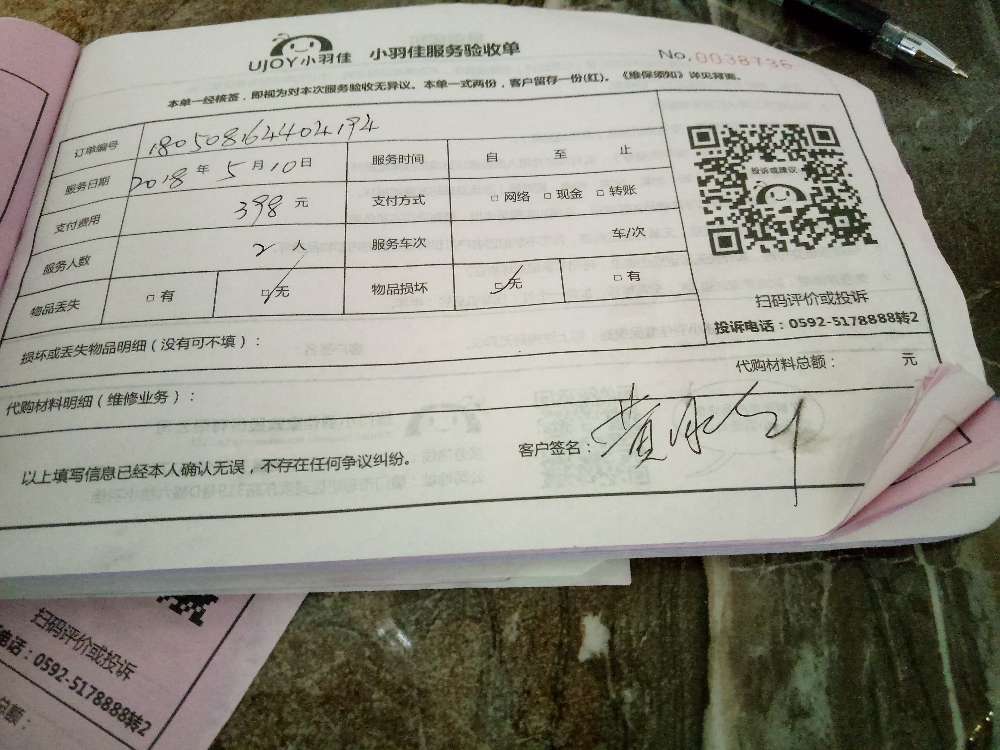 UJOY小羽佳 小羽佳服务验收单 No.0038136
本单一经核签，即视为对本次服务验收无异议。本单一式两份，客户留存一份(红)。《维保须知》详见背面。
订单编号 180508164404194
服务日期 2018 年 5 月 10 日 服务时间 自 至 止
支付费用 398 元 支付方式 □ 网络 □ 现金 □ 转账
服务人数 2 人 服务车次 车/次
物品丢失 □ 有 □ 无 物品损坏 □ 无 □ 有
投诉或建议
扫码评价或投诉
投诉电话：0592-5178888转2
损坏或丢失物品明细（没有可不填）：
代购材料明细（维修业务）： 代购材料总额： 元
以上填写信息已经本人确认无误，不存在任何争议纠纷。 客户签名：
扫码评价或投诉
电话：0592-5178888转2
总额：